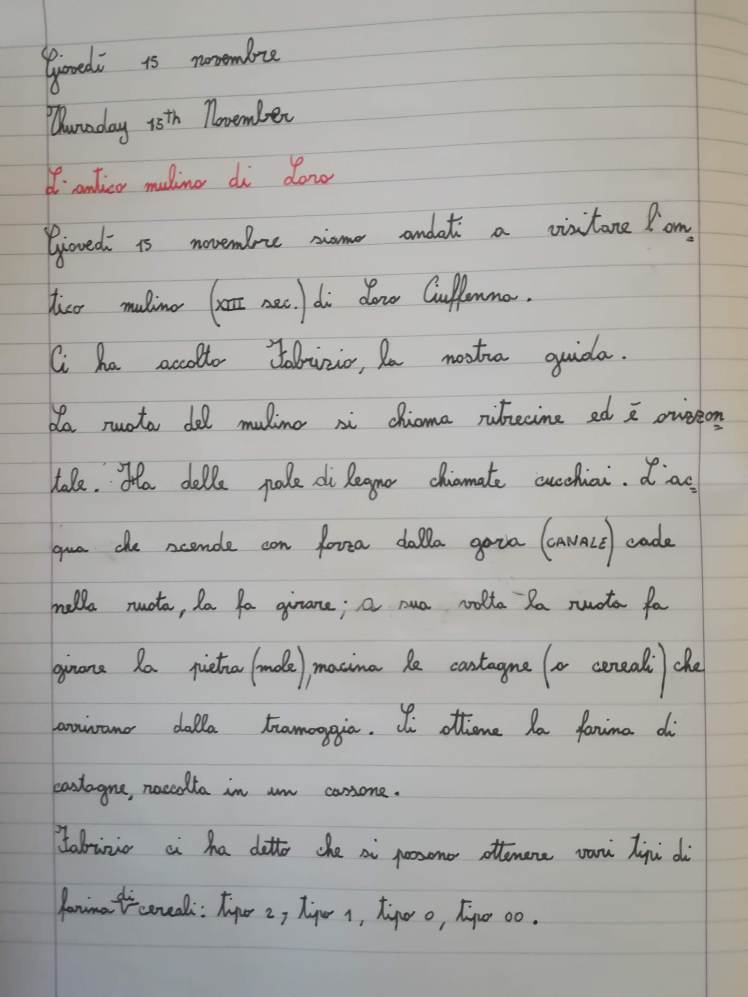 Giovedì 15 novembre
Thursday 15th November
L'antico mulino di Loro
Giovedì 15 novembre siamo andati a visitare l'an=
tico mulino (XIII sec.) di Loro Ciuffenna.
Ci ha accolto Fabrizio, la nostra guida.
La ruota del mulino si chiama ritrecine ed è orizzon=
tale. Ha delle pale di legno chiamate cucchiai. L'ac=
qua che scende con forza dalla gora (CANALE) cade
nella ruota, la fa girare; a sua volta la ruota fa
girare la pietra (mole), macina le castagne (o cereali) che
arrivano dalla tramoggia. Si ottiene la farina di
castagne, raccolta in un cassone.
Fabrizio ci ha detto che si possono ottenere vari tipi di
farina di cereali: tipo 2, tipo 1, tipo 0, tipo 00.